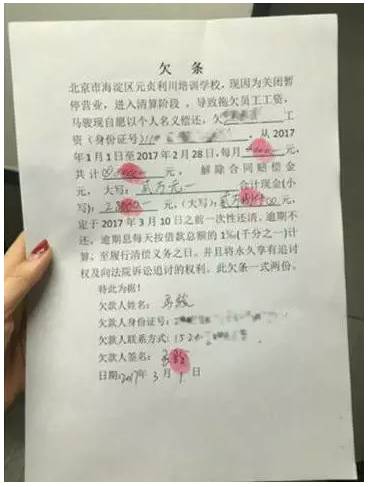 欠 条
北京市海淀区元贞利川培训学校，现因为关闭暂
停营业，进入清算阶段，导致拖欠员工工资，
马骏现自愿以个人名义偿还，欠 工
资（身份证号 ，从 2017
年 1 月 1 日至 2017 年 2 月 28 日，每月 元，
共计 元， 解除合同赔偿金
元， 大写： 贰万元 合计现金(小
写)： 元，（大写）： 元，
定于 2017 年 3 月 10 日之前一次性还清，逾期不
还，逾期息每天按借款总额的 1‰(千分之一)计
算，至履行清偿义务之日。并且将永久享有追讨
权及向法院诉讼追讨的权利。此欠条一式两份。
特此为据！
欠款人姓名： 马骏
欠款人身份证号：
欠款人联系方式：152
欠款人签名： 马骏
日期：2017年 3 月 1 日